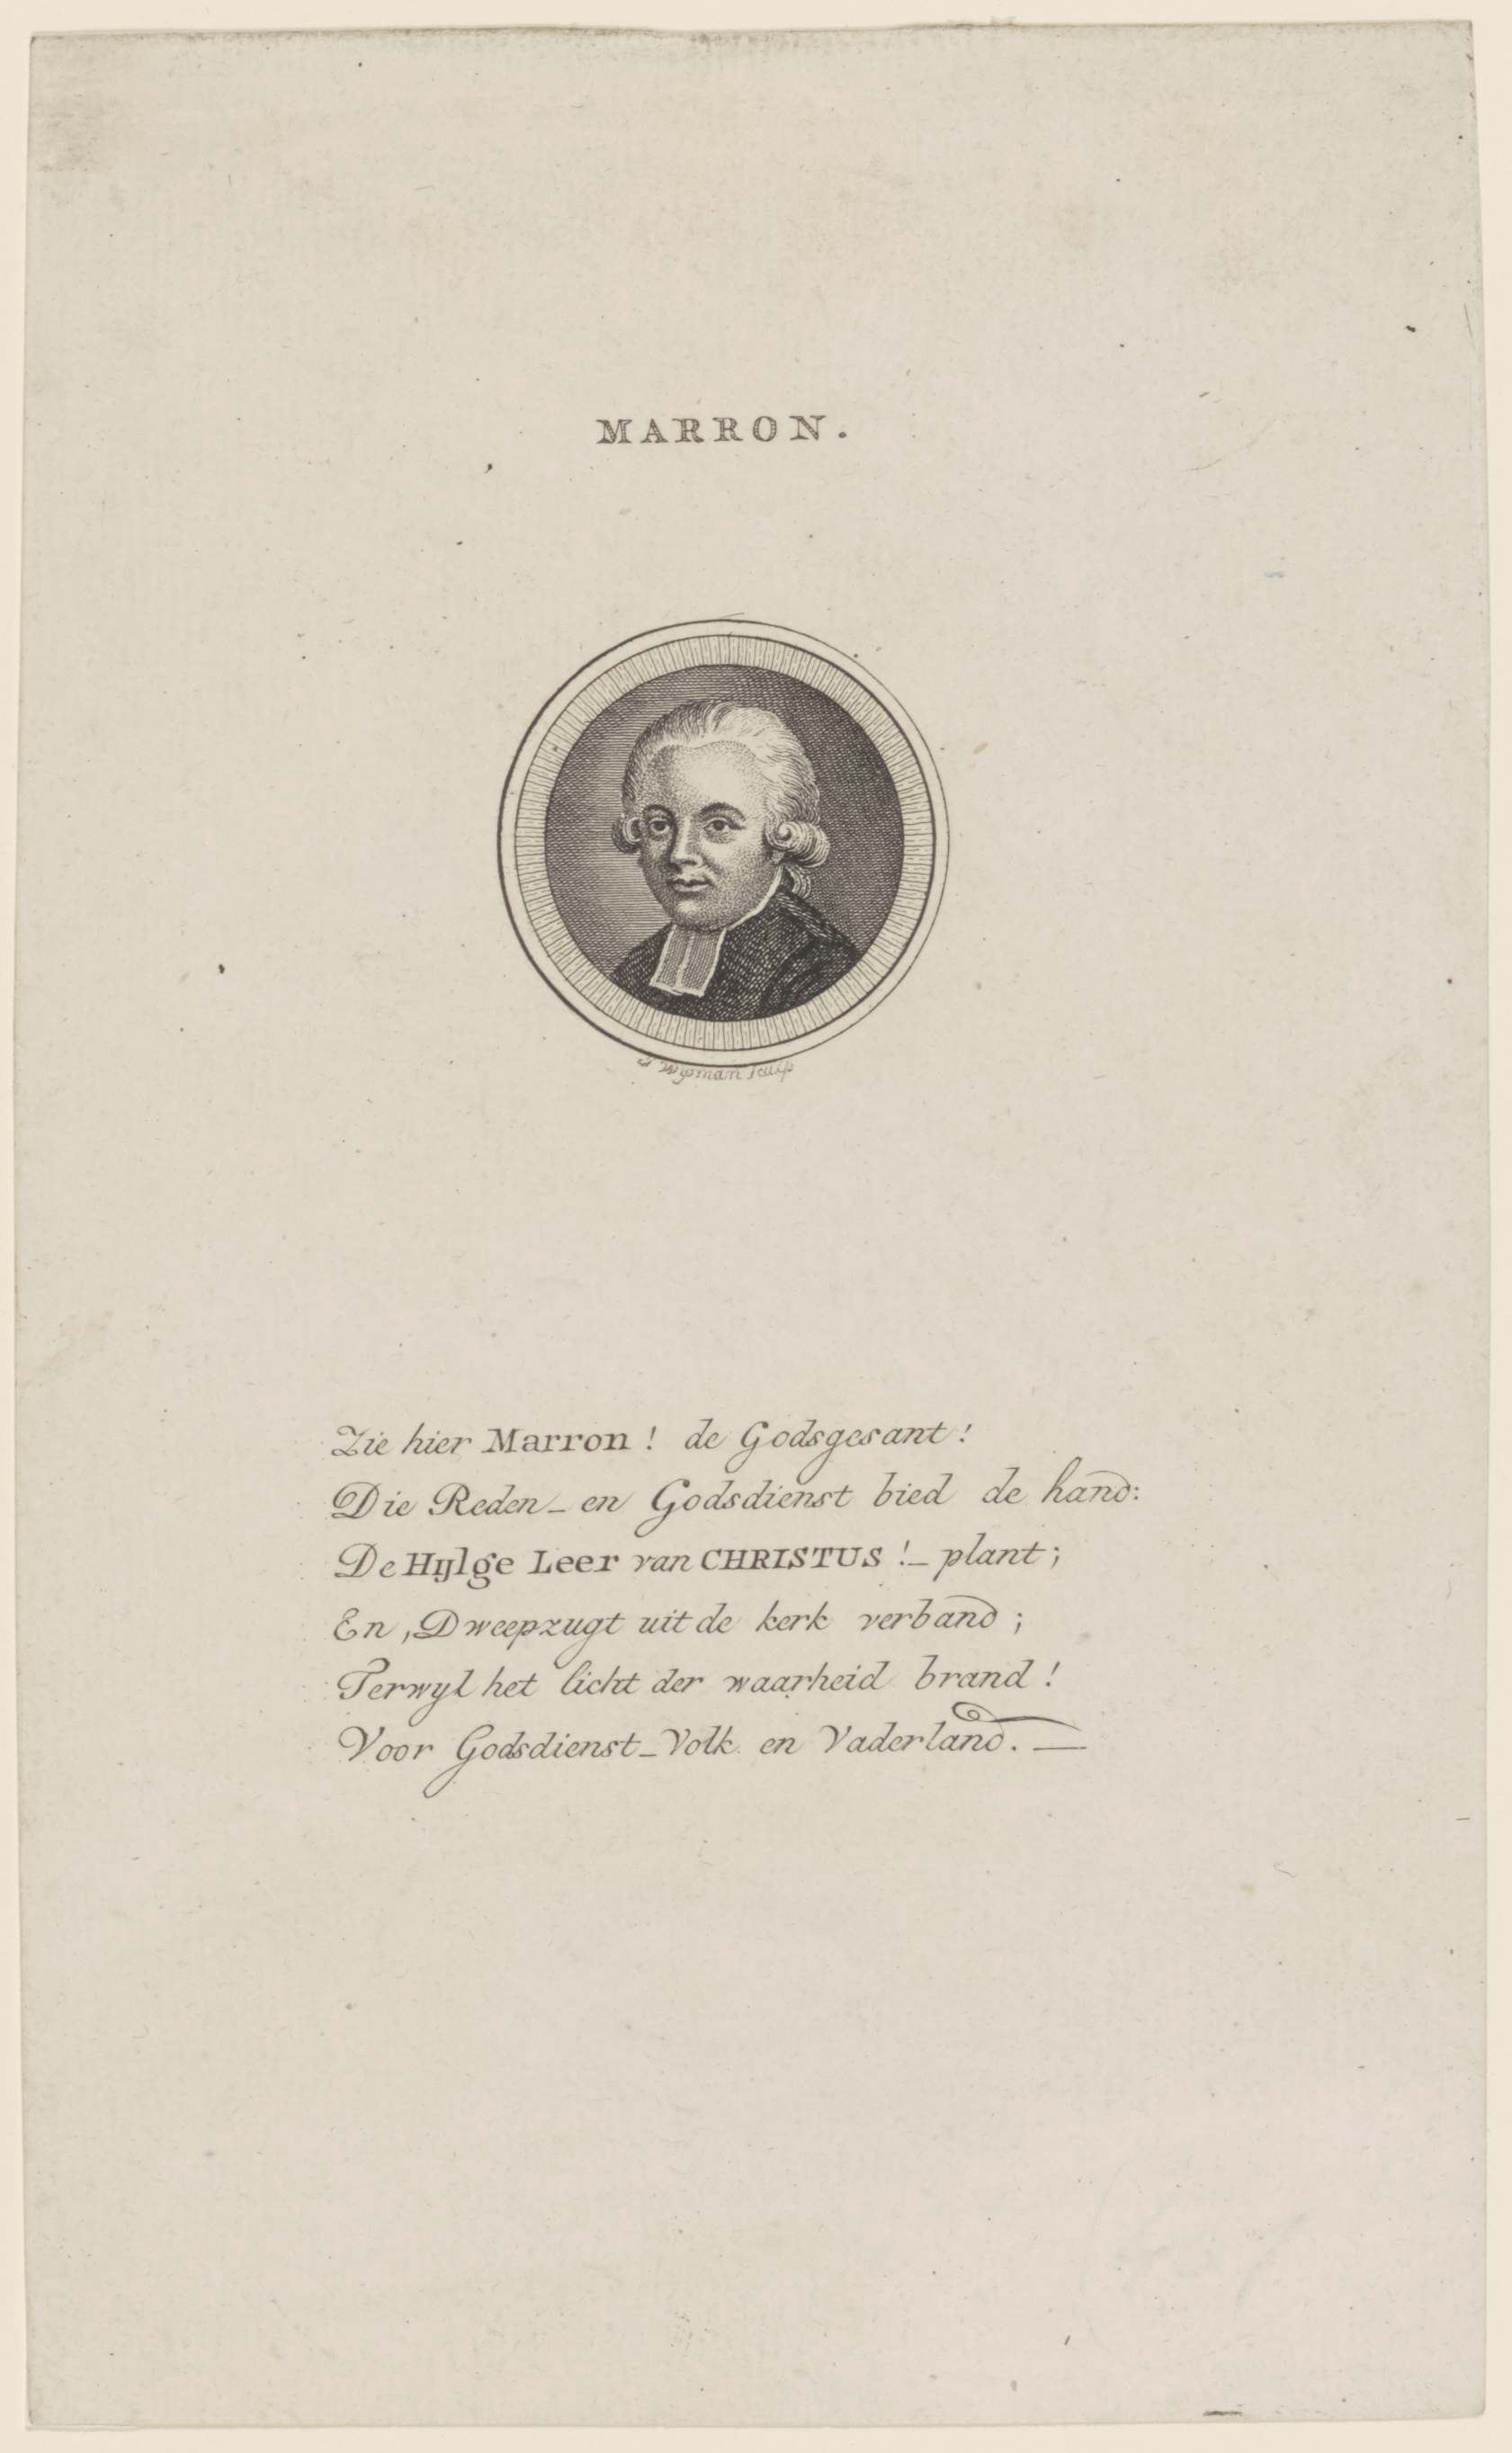 MARRON.
J Wysman Sculp
Zie hier Marron! de Godsgesant!
Die Reden_en Godsdienst bied de hand:
De Hylge Leer van CHRISTUS!_plant;
En, Dweepzugt uit de kerk verband;
Terwyl het licht der waarheid brand!
Voor Godsdienst_Volk en Vaderland._